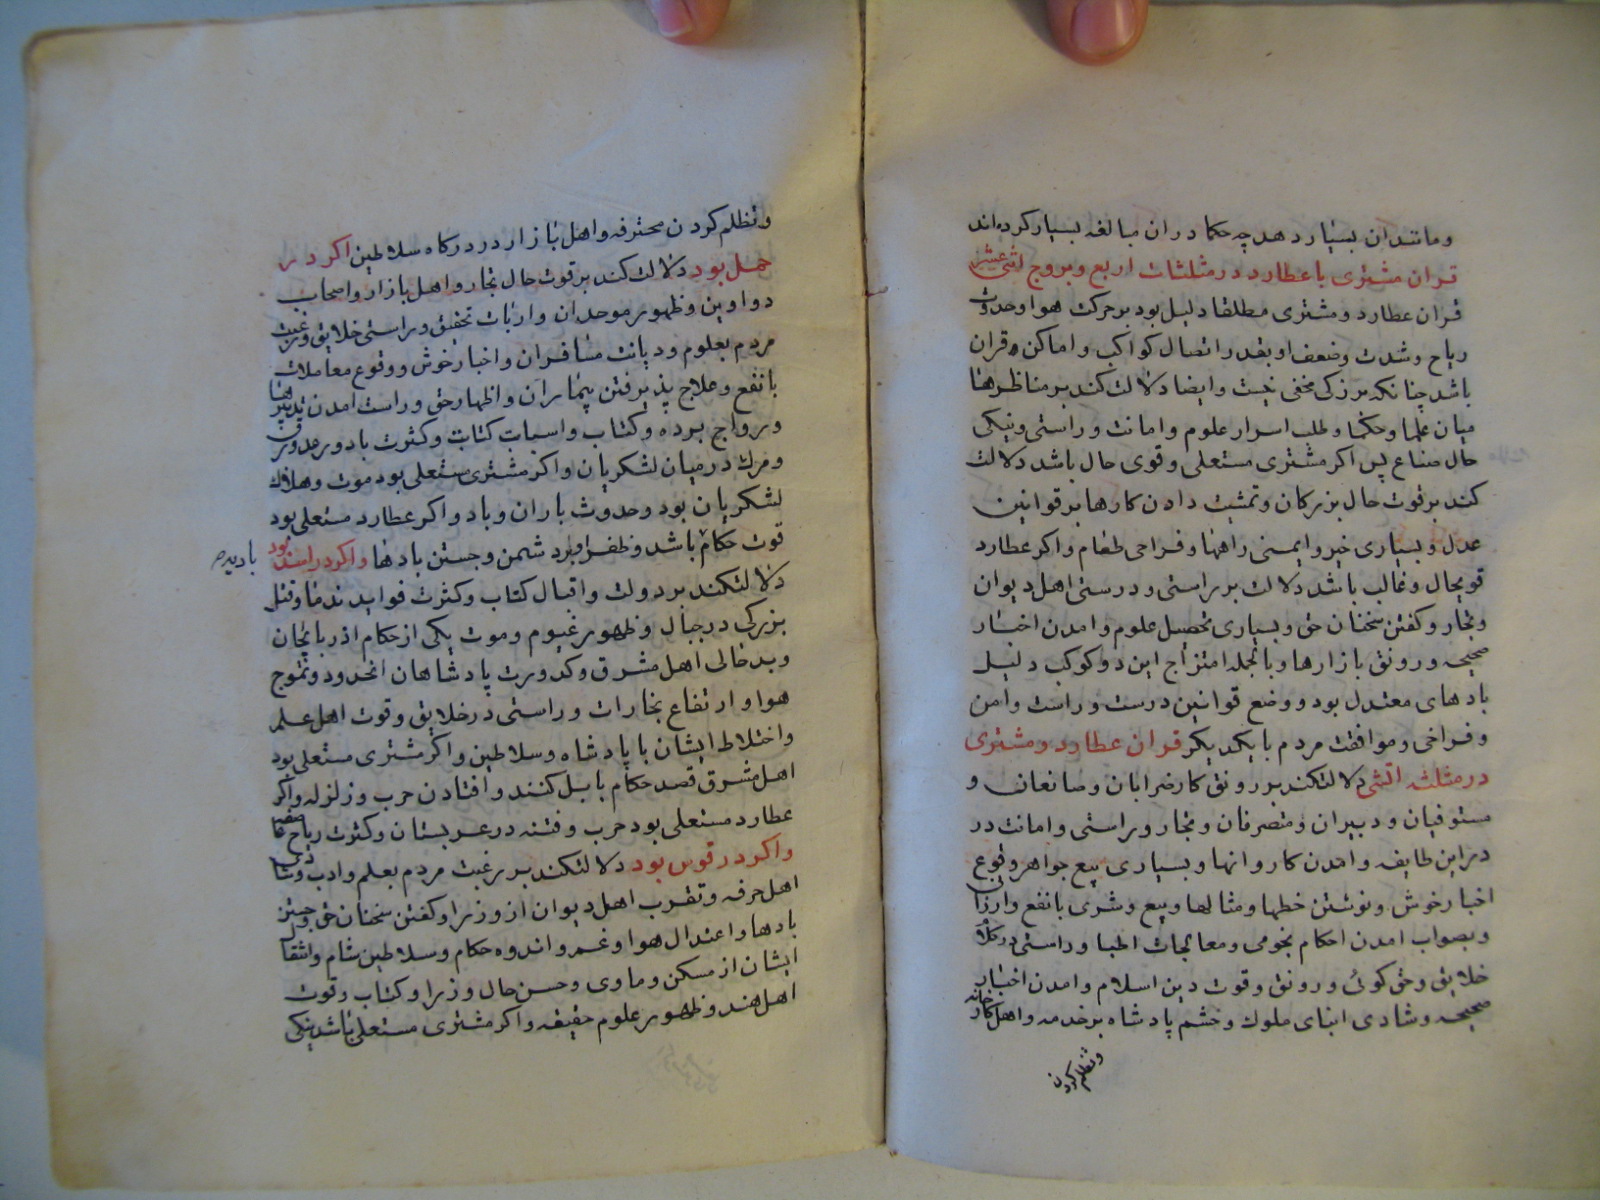 ومانند ان بسیار دهد چه حکما در ان مبالغه بسیار کرده اند
قران مشتری با عطارد در مثلثات اربع و بروج اثنی عشر
قران عطارد و مشتری مطلقا دلیل بود بر حرکت هوا و حدوث
ریاح و شدت و ضعف او بقدر اتصال کواکب و اماکن قران
باشد چنانکه بر زکی مخفی نیست و ایضا دلالت کند بر مناظرها
میان علما و حکما و طلب اسرار علوم و امانت و راستی و نیکی
حال صناع پس اکر مشتری مستعلی و قوی حال باشد دلالت
کند بر قوت حال بزرکان و تمشیت دادن کارها بر قوانین
عدل و بسیاری خیر و ایمنی راهها و فراخی طعام و اکر عطارد
قویحال و غالب باشد دلالت بر راستی و درستی اهل دیوان
و تجار و کفتن سخنان حق و بسیاری تحصیل علوم و امدن اخبار
صحیحه و رونق بازارها و بالجمله امتزاج این دو کوکب دلیل
بادهای معتدل بود و وضع قوانین درست و راست و امن
و فراخی و موافقت مردم با یکدیکر قران عطارد و مشتری
در مثلثه اتشی دلالتکند بر رونق کار ضرابان و صانعان و
مستوفیان و دبیران و متصرفان و تجار و راستی و امانت در
در این طایفه و امدن کاروانها و بسیاری بیع جواهر و وقوع
اخبار خوش و نوشتن خطها و مثالها و بیع و شری با نفع و ارزانی
و بصواب امدن احکام نجومی و معالجات اطبا و راستی در کلام
خلایق و حق کوئی و رونق و قوت دین اسلام و امدن اخبار
صحیحه و شادی ابنای ملوک و خشم پادشاه بر خدمه و اهل کارخانه
و تظلم کردن
و تظلم کردن محترفه و اهل بازار در درکاه سلاطین اکر در
حمل بود دلالت کند بر قوت حال تجار و اهل بازار و اصحاب
دواوین و ظهور موحدان و ارباب تحقیق و راستی خلایق و رغبت
مردم بعلوم و دیانت مسافران و اخبار خوش و وقوع معاملات
با نفع و علاج پذیرفتن بیماران و اظهار حق و راست امدن تدبیرها
و رواج برده و کتاب و اسباب کتابت و کثرت باد و رعد و برق
و مرک در میان لشکریان و اکر مشتری مستعلی بود موت و هلاک
لشکریان بود و حدوث باران و باد و اکر عطارد مستعلی بود
قوت حکام باشد و ظفر او بر دشمن و جستن بادها و اکر در اسد بود
دلالتکند بر دولت و اقبال کتاب و کثرت فواید ندما و قتل
بزرکی در جبال و ظهور غیوم و موت یکی از حکام اذربایجان
و بدحالی اهل مشرق و کدورت پادشاهان انحدود و تموج
هوا و ارتفاع بخارات و راستی در خلایق و قوت اهل علم
و اختلاط ایشان با پادشاه و سلاطین و اکر مشتری مستعلی بود
اهل مشرق قصد حکام بابل کنند و افتادن حرب و زلزله و اکر
عطارد مستعلی بود حرب و فتنه در عربستان و کثرت ریاح
و اکر در قوس بود دلالتکند بر رغبت مردم بعلم و ادب
اهل حرفه و تقرب اهل دیوان از وزرا و کفتن سخنان حق و جستن
بادها و اعتدال هوا و غم و اندوه حکام و سلاطین شام و انتقا
ایشان از مسکن و ماوی و حسن حال وزرا و کتاب و قوت
اهل هند و ظهور علوم حقیقه و اکر مشتری مستعلی باشد نیکی